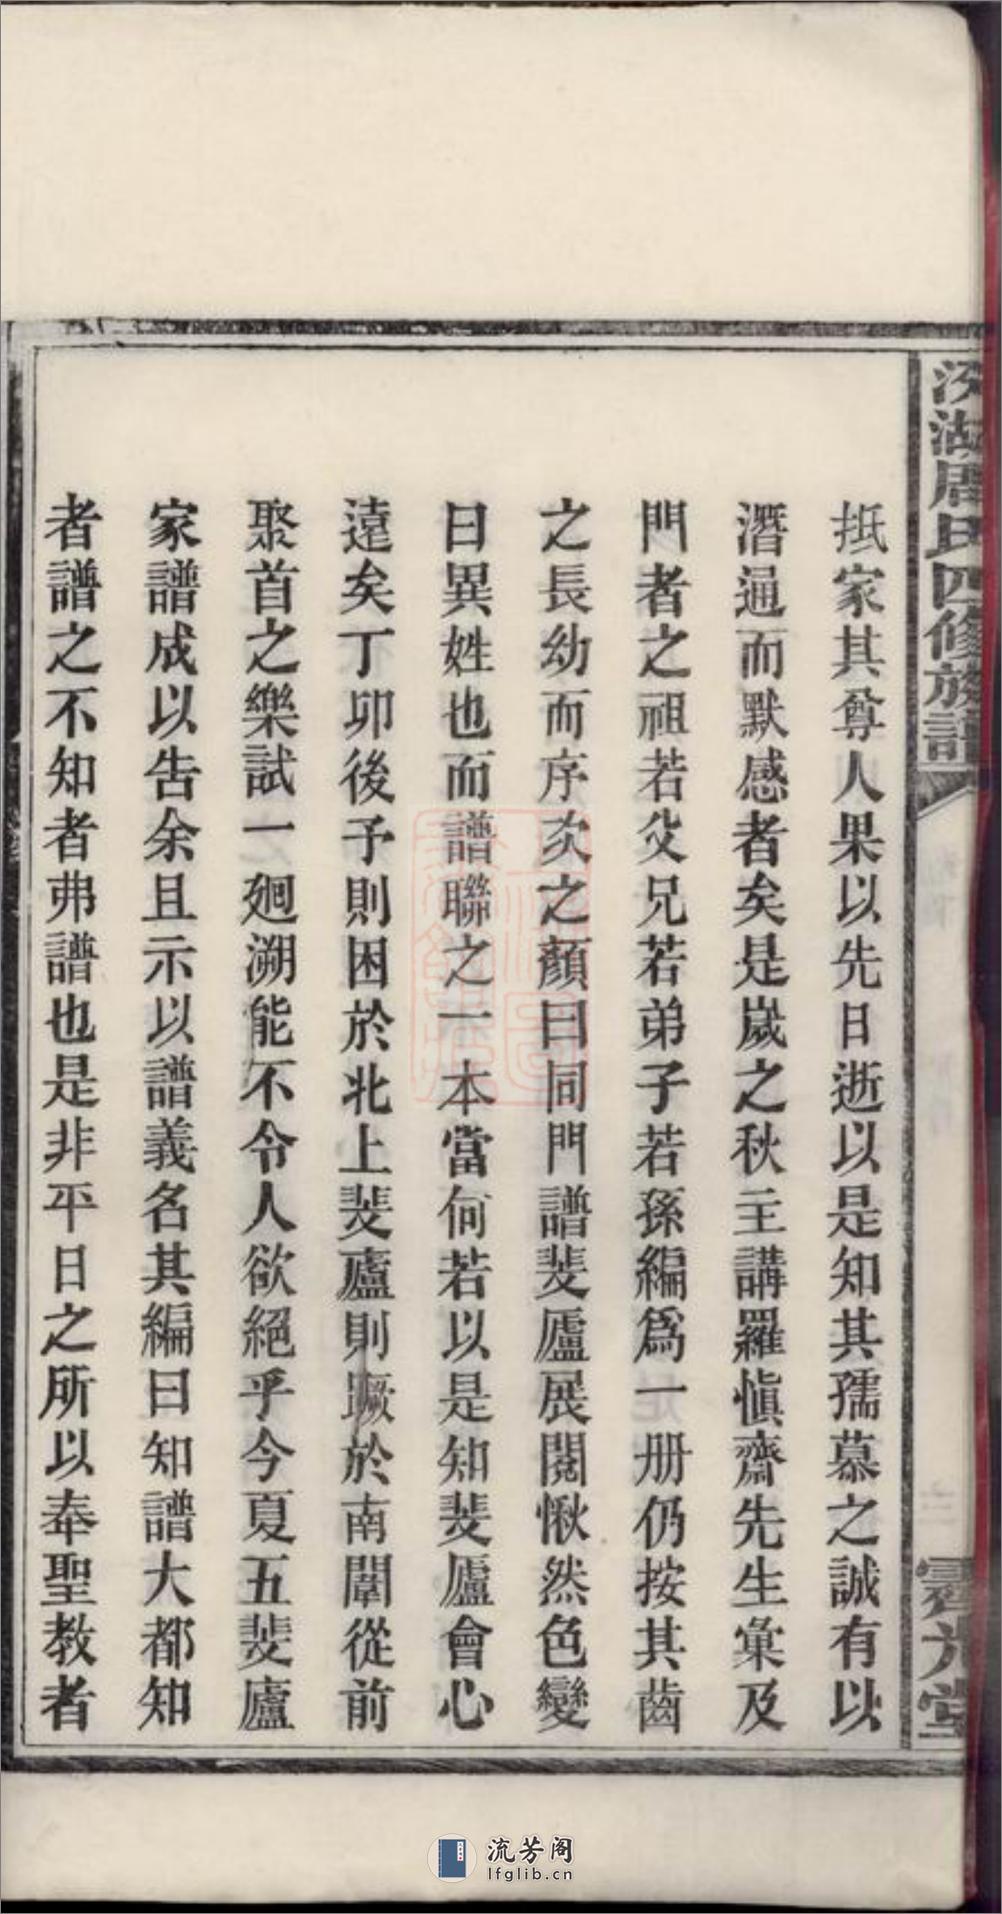 汾湖周氏四修族譜
霽光堂
抵家其尊人果以先日逝以是知其孺慕之誠有以
潛通而默感者矣是歲之秋主講羅愼齋先生彙及
門者之祖若父兄若弟子若孫編爲一册仍按其齒
之長幼而序次之顏曰同門譜斐廬展閱愀然色變
曰異姓也而譜聯之一本當何若以是知斐廬會心
遠矣丁卯後予則困於北上斐廬則蹶於南闈從前
聚首之樂試一廻溯能不令人欲絕乎今夏五斐廬
家譜成以告余且示以譜義名其編曰知譜大都知
者譜之不知者弗譜也是非平日之所以奉聖教者
流芳阁
lfglib.cn